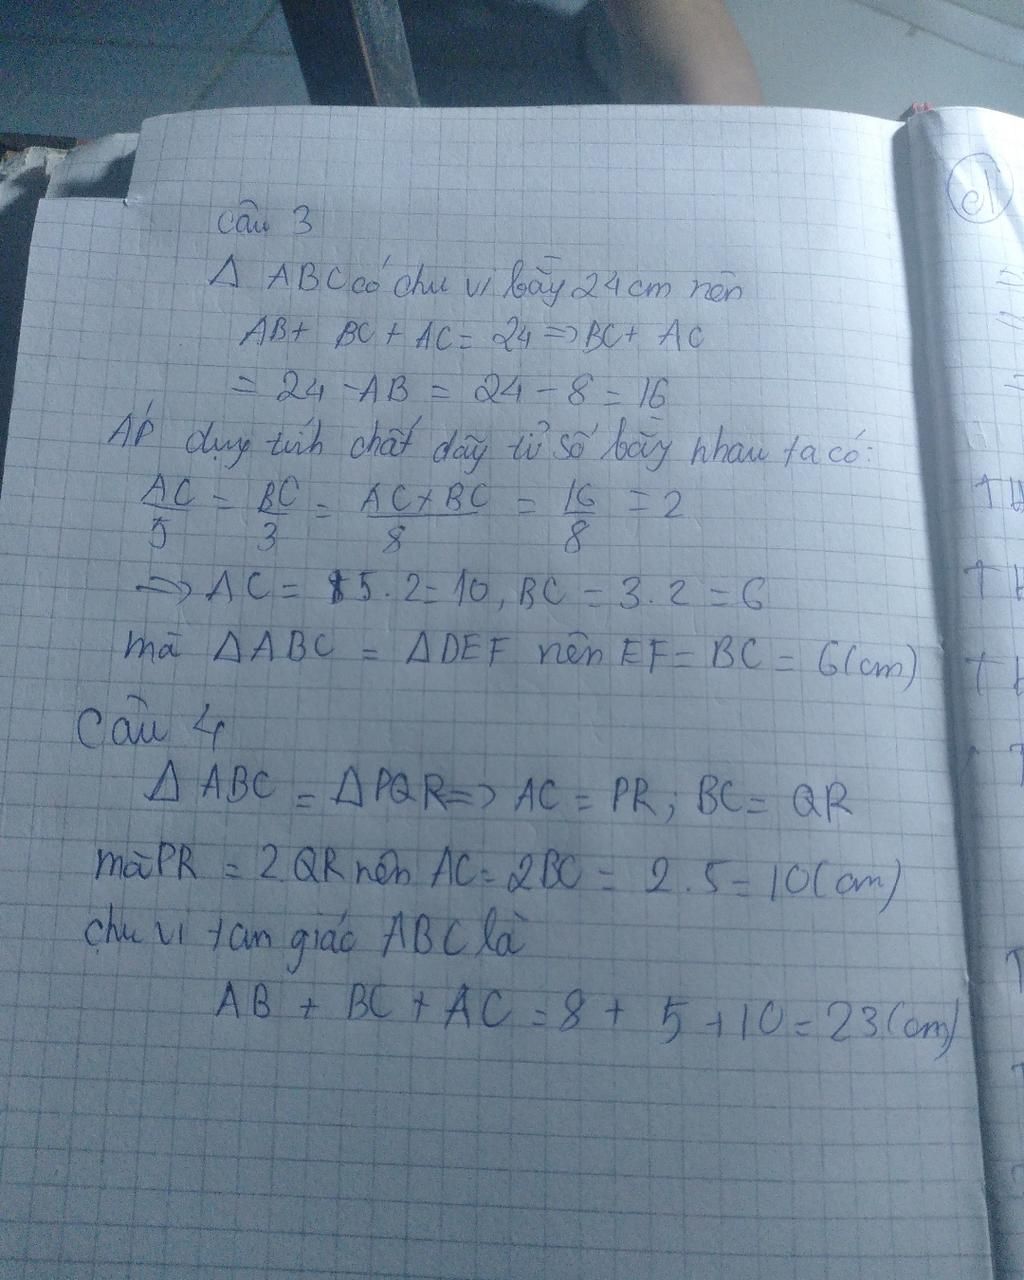 Câu 3
Δ ABC có chu vi bằng 24cm nên
AB + BC + AC = 24 => BC + AC
= 24 - AB = 24 - 8 = 16
Áp dụng tính chất dãy tỉ số bằng nhau ta có:
AC/5 = BC/3 = AC+BC/8 = 16/8 = 2
=> AC = 5.2 = 10, BC = 3.2 = 6
mà ΔABC = ΔDEF nên EF = BC = 6(cm)
Câu 4
Δ ABC = ΔPQR => AC = PR; BC = QR
mà PR = 2QR nên AC = 2BC = 2.5 = 10(cm)
chu vi tam giác ABC là
AB + BC + AC = 8 + 5 + 10 = 23(cm)